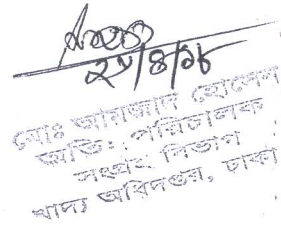 ২৮/৪/১৮
মোঃ আমজাদ হোসেন
অতিঃ পরিচালক
সংগ্রহ বিভাগ
খাদ্য অধিদপ্তর, ঢাকা